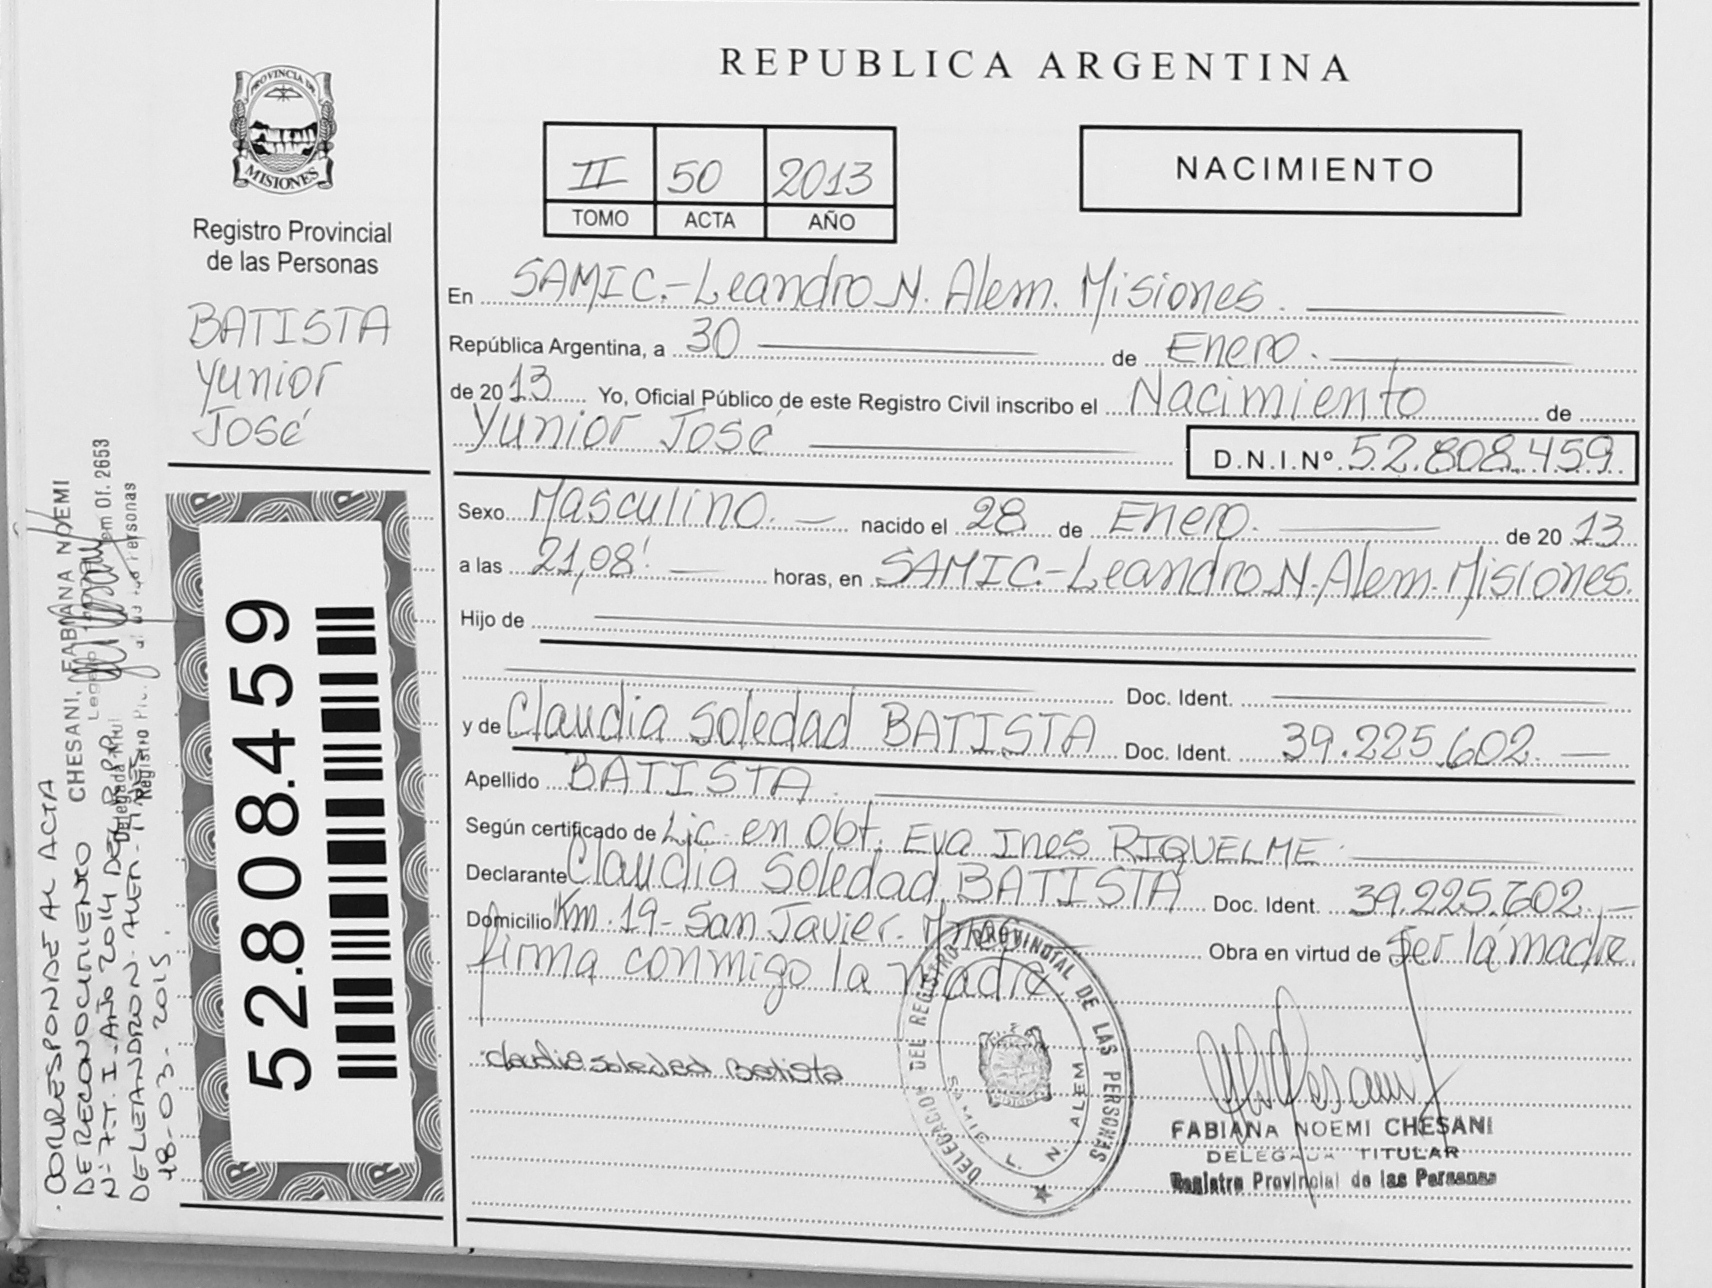 REPUBLICA ARGENTINA
PROVINCIA DE
MISIONES
Registro Provincial
de las Personas
BATISTA
Yunior
José
II 50 2013
TOMO ACTA AÑO
NACIMIENTO
En SAMIC.-Leandro N. Alem. Misiones.
República Argentina, a 30 de Enero.
de 2013 Yo, Oficial Público de este Registro Civil inscribo el Nacimiento de
Yunior José
D.N.I.Nº 52.808.459
Sexo Masculino. nacido el 28 de Enero. de 2013
a las 21,08' horas, en SAMIC.-Leandro N. Alem. Misiones.
Hijo de
Doc. Ident.
y de Claudia Soledad BATISTA Doc. Ident. 39.225.602.
Apellido BATISTA
Según certificado de Lic. en Obt. Eva Ines RIQUELME.
Declarante Claudia Soledad BATISTA Doc. Ident. 39.225.602.
Domicilio Km. 19- San Javier. Obra en virtud de ser la madre.
firma conmigo la madre
Claudia Soledad Batista
DELEGACION DEL REGISTRO PROVINCIAL DE LAS PERSONAS
SAMIC L. N. ALEM
FABIANA NOEMI CHESANI
DELEGADA TITULAR
Registro Provincial de las Personas
52.808.459
CORRESPONDE AL ACTA
DE RECONOCIMIENTO
Nº 7-T. I-AÑO 2014 DEL R.P.P.
DE LEANDRO N. ALEM-
18-03-2015.
CHESANI, FABIANA NOEMI
Of. 2653